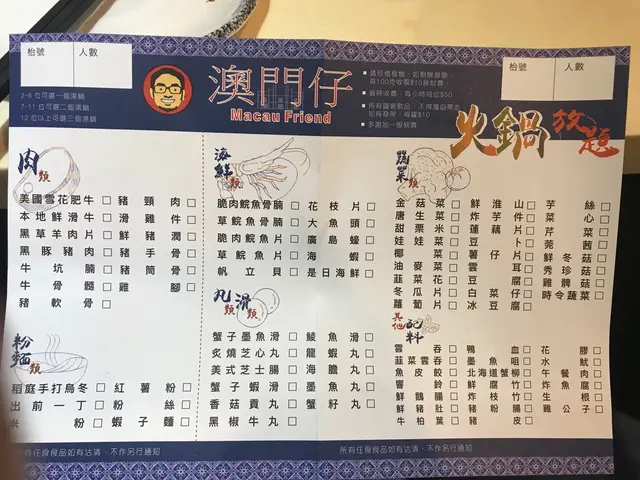 枱號 人數
2-6 位可選一個湯鍋
7-11 位可選二個湯鍋
12 位以上可選三個湯鍋
澳門仔
Macau Friend
請珍惜食物，如剩餘食物，
每100克收取$10食材費。
逾時收費，每小時每位$50
多謝加一服務費
枱號 人數
火鍋放題
肉類
美國雪花肥牛 □ 豬頸肉 □
本地鮮滑牛 □ 滑雞件 □
黑草羊肉片 □ 鮮豬潤 □
黑豚豬肉 □ 豬手骨 □
牛坑腩 □ 豬筒骨 □
牛骨髓 □ 雞腳 □
豬軟骨 □
海鮮類
脆肉鯇魚骨腩 □ 花枝片 □
草鯇魚骨腩 □ 大魚頭 □
脆肉鯇魚片 □ 廣島蠔 □
草鯇魚片 □ 海蝦 □
帆立貝 □ 是日海鮮 □
蔬菜類
金菇菜 □ 鮮淮山 □ 芋絲 □
唐生菜 □ 炸芋件 □ 菜心 □
甜粟米 □ 蓮藕片 □ 芹菜 □
娃娃菜 □ 豆卜 □ 莞茜 □
椰菜 □ 薯仔片 □ 鮮冬菇 □
油麥菜 □ 雲耳 □ 秀珍菇 □
韮菜花 □ 豆腐 □ 雞髀菇 □
冬瓜片 □ 白菜仔 □ 時令蔬菜 □
蘿蔔片 □ 冰豆腐 □
丸類 滑類
蟹子墨魚滑 □ 鯪魚滑 □
炙燒芝心丸 □ 龍蝦丸 □
美式芝士腸 □ 海膽丸 □
蟹子蝦滑 □ 墨魚丸 □
香菇貢丸 □ 蟹籽丸 □
黑椒牛丸 □
粉麵類
稻庭手打烏冬 □ 紅薯粉 □
出前一丁 □ 粉絲 □
米粉 □ 蝦子麵 □
其他配料
雲吞 □ 鴨血 □ 花膠 □
韮菜雲吞 □ 墨魚咀 □ 水魷 □
魚皮餃 □ 北海道蟹柳 □ 午餐肉 □
響鈴 □ 鮮腐竹 □ 炸魚腐 □
鮮鵝腸 □ 炸枝竹 □ 生根 □
鮮豬肚 □ 豬粉腸 □ 雞子 □
牛柏葉 □ 豬皮 □
所有任食食品如有沽清，不作另行通知
所有任食食品如有沽清，不作另行通知